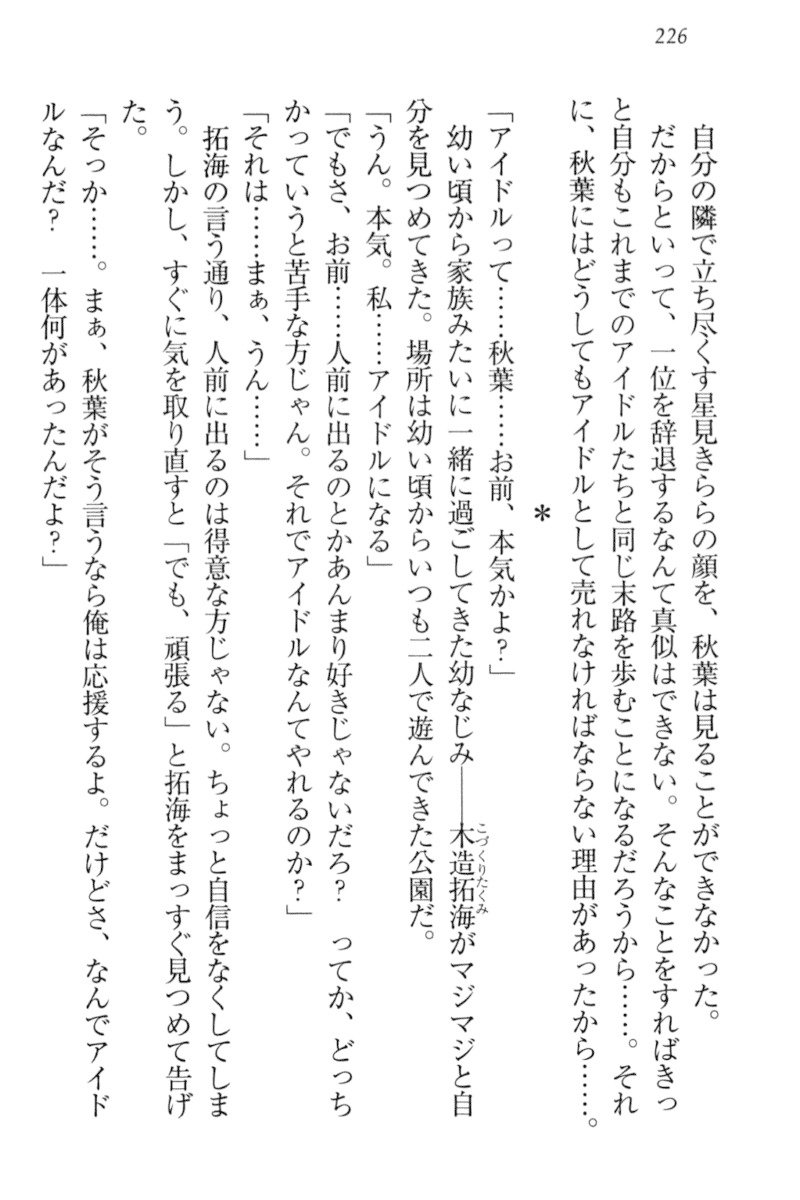 226
自分の隣で立ち尽くす星見きららの顔を、秋葉は見ることができなかった。
だからといって、一位を辞退するなんて真似はできない。そんなことをすればきっ
と自分もこれまでのアイドルたちと同じ末路を歩むことになるだろうから……。それ
に、秋葉にはどうしてもアイドルとして売れなければならない理由があったから……。
＊
「アイドルって……秋葉……お前、本気かよ？」
幼い頃から家族みたいに一緒に過ごしてきた幼なじみ――木造拓海がマジマジと自
こづくりたくみ
分を見つめてきた。場所は幼い頃からいつも二人で遊んできた公園だ。
「うん。本気。私……アイドルになる」
「でもさ、お前……人前に出るのとかあんまり好きじゃないだろ？　ってか、どっち
かっていうと苦手な方じゃん。それでアイドルなんてやれるのか？」
「それは……まぁ、うん……」
拓海の言う通り、人前に出るのは得意な方じゃない。ちょっと自信をなくしてしま
う。しかし、すぐに気を取り直すと「でも、頑張る」と拓海をまっすぐ見つめて告げ
た。
「そっか……。まぁ、秋葉がそう言うなら俺は応援するよ。だけどさ、なんでアイド
ルなんだ？　一体何があったんだよ？」